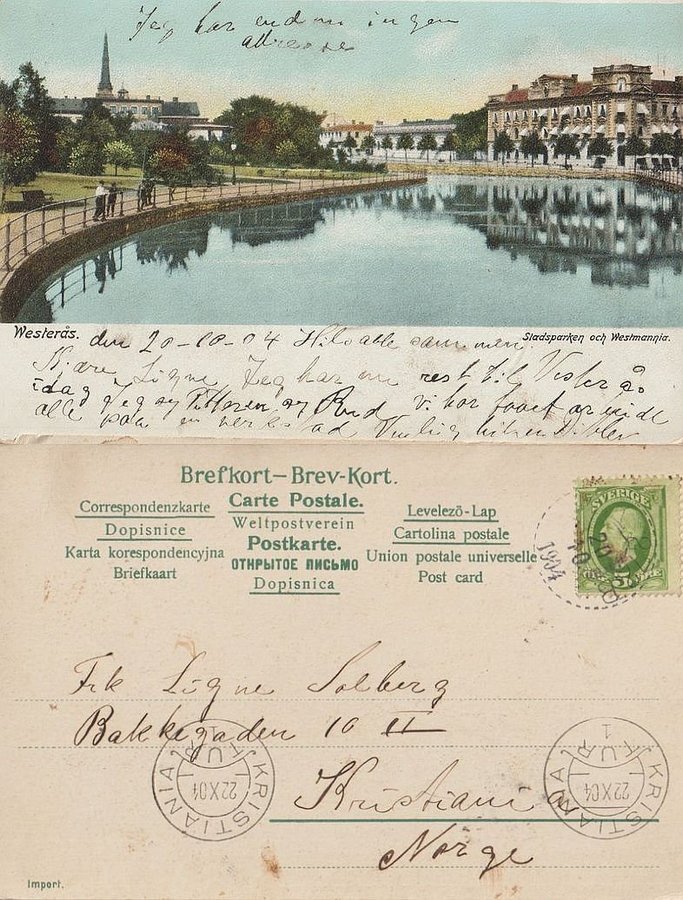 Jeg har endnu ingen
adresse
Westerås.
den 20-10-04 Hils alle sammen
Stadsparken och Westmannia.
Kjære Signe Jeg har nu rest til Vesterås
idag Jeg og og Rud vi har faaet arbeide
alle paa
Brefkort–Brev-Kort.
Correspondenzkarte
Dopisnice
Karta korespondencyjna
Briefkaart
Carte Postale.
Weltpostverein
Postkarte.
ОТКРЫТОЕ ПИСЬМО
Dopisnica
Levelező-Lap
Cartolina postale
Union postale universelle
Post card
SVERIGE
20
10
1904
Frk Signe Solberg
Bakkegaden 10 II
Kristiania
Norge
KRISTIANIA
22 X 04
TUR 1
KRISTIANIA
22 X 04
TUR 1
Import.